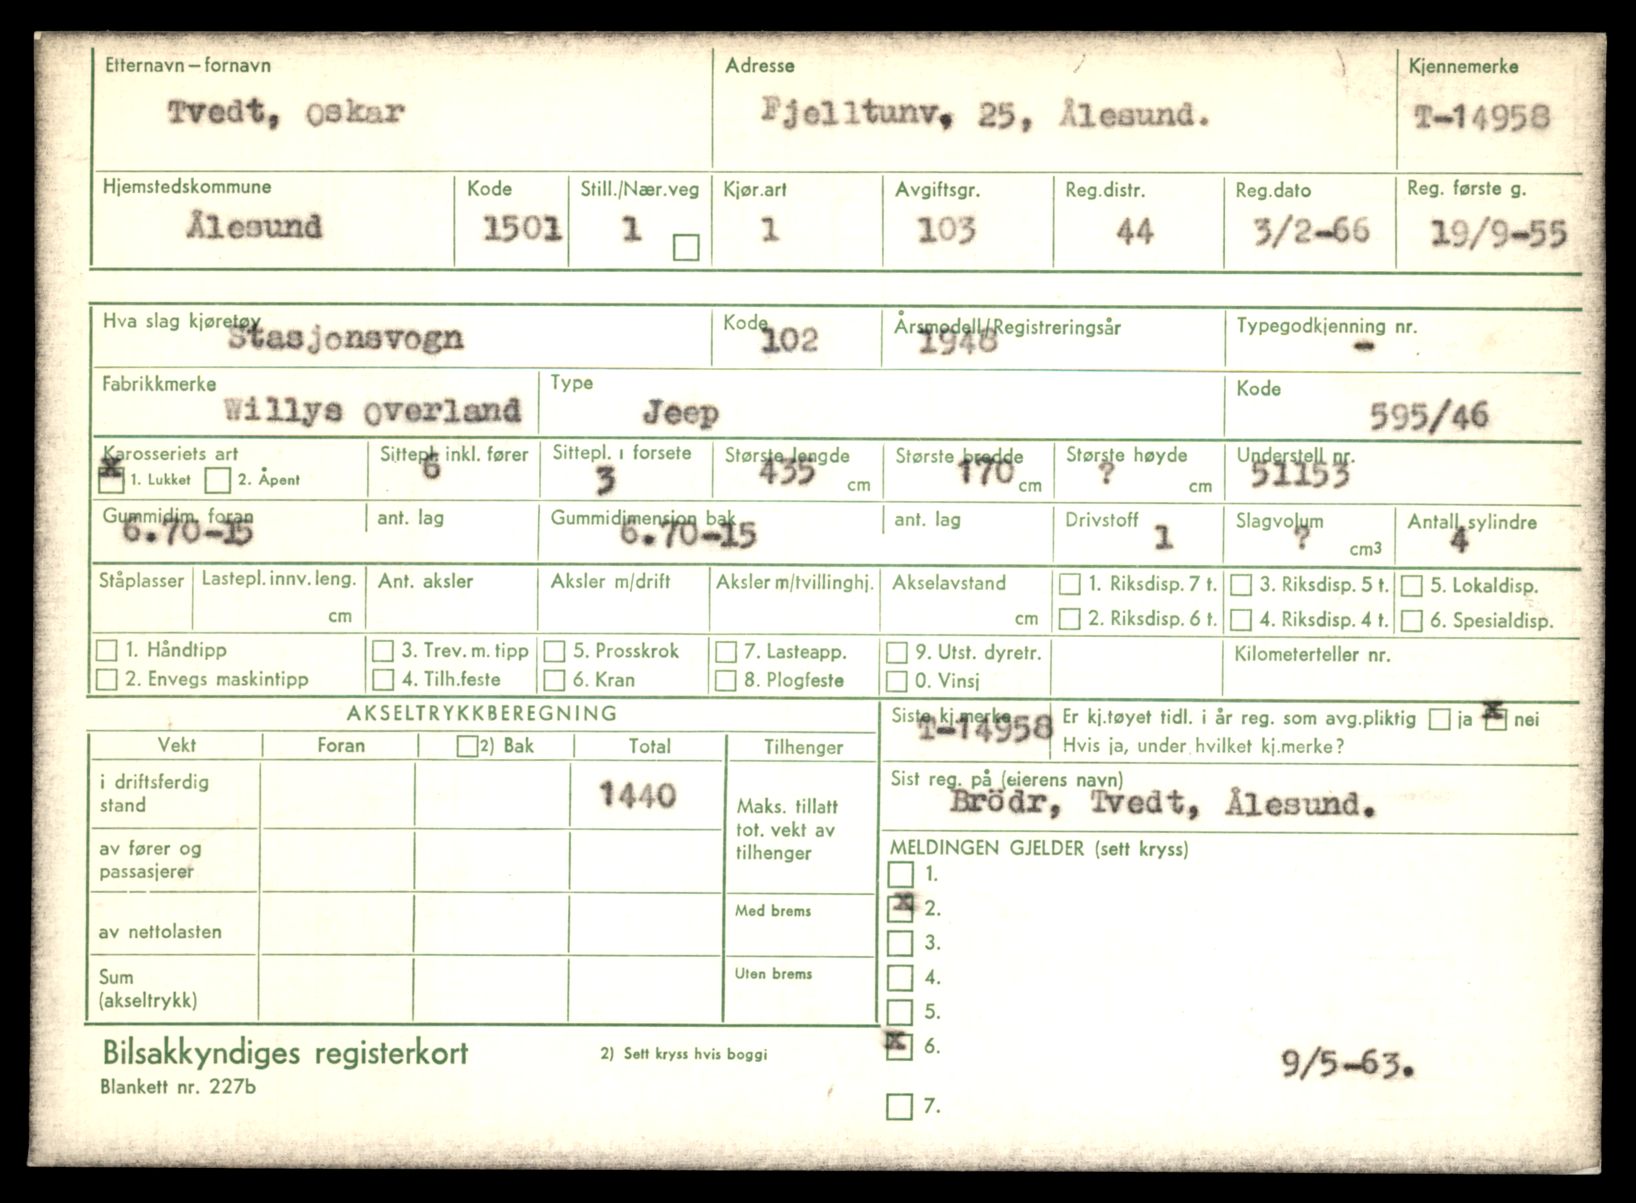 Etternavn – fornavn Adresse Kjennemerke
Tvedt, Oskar Fjelltunv. 25, Ålesund. T-14958
Hjemstedskommune Kode Still./Nær.veg Kjør.art Avgiftsgr. Reg.distr. Reg.dato Reg. første g.
Ålesund 1501 1 1 103 44 3/2-66 19/9-55
Hva slag kjøretøy Kode Årsmodell/Registreringsår Typegodkjenning nr.
Stasjonsvogn 102 1948 -
Fabrikkmerke Type Kode
Willys Overland Jeep 595/46
Karosseriets art Sittepl. inkl. fører Sittepl. i forsete Største lengde Største bredde Største høyde Understell nr.
x 1. Lukket 2. Åpent 6 3 435 cm 170 cm ? cm 51153
Gummidim. foran ant. lag Gummidimensjon bak ant. lag Drivstoff Slagvolum Antall sylindre
6.70-15 6.70-15 1 ? cm3 4
Ståplasser Lastepl. innv. leng. Ant. aksler Aksler m/drift Aksler m/tvillinghj. Akselavstand 1. Riksdisp. 7 t. 3. Riksdisp. 5 t. 5. Lokaldisp.
cm cm 2. Riksdisp. 6 t. 4. Riksdisp. 4 t. 6. Spesialdisp.
1. Håndtipp 3. Trev. m. tipp 5. Prosskrok 7. Lasteapp. 9. Utst. dyretr. Kilometerteller nr.
2. Envegs maskintipp 4. Tilh.feste 6. Kran 8. Plogfeste 0. Vinsj
AKSELTRYKKBEREGNING
Vekt Foran 2) Bak Total Tilhenger
i driftsferdig stand 1440
Maks. tillatt
tot. vekt av
tilhenger
av fører og
passasjerer
Med brems
av nettolasten
Uten brems
Sum
(akseltrykk)
Siste kj.merke Er kj.tøyet tidl. i år reg. som avg.pliktig ja x nei
T-14958 Hvis ja, under hvilket kj.merke?
Sist reg. på (eierens navn)
Brödr, Tvedt, Ålesund.
MELDINGEN GJELDER (sett kryss)
1.
x 2.
3.
4.
5.
x 6.
9/5-63.
7.
Bilsakkyndiges registerkort 2) Sett kryss hvis boggi
Blankett nr. 227b